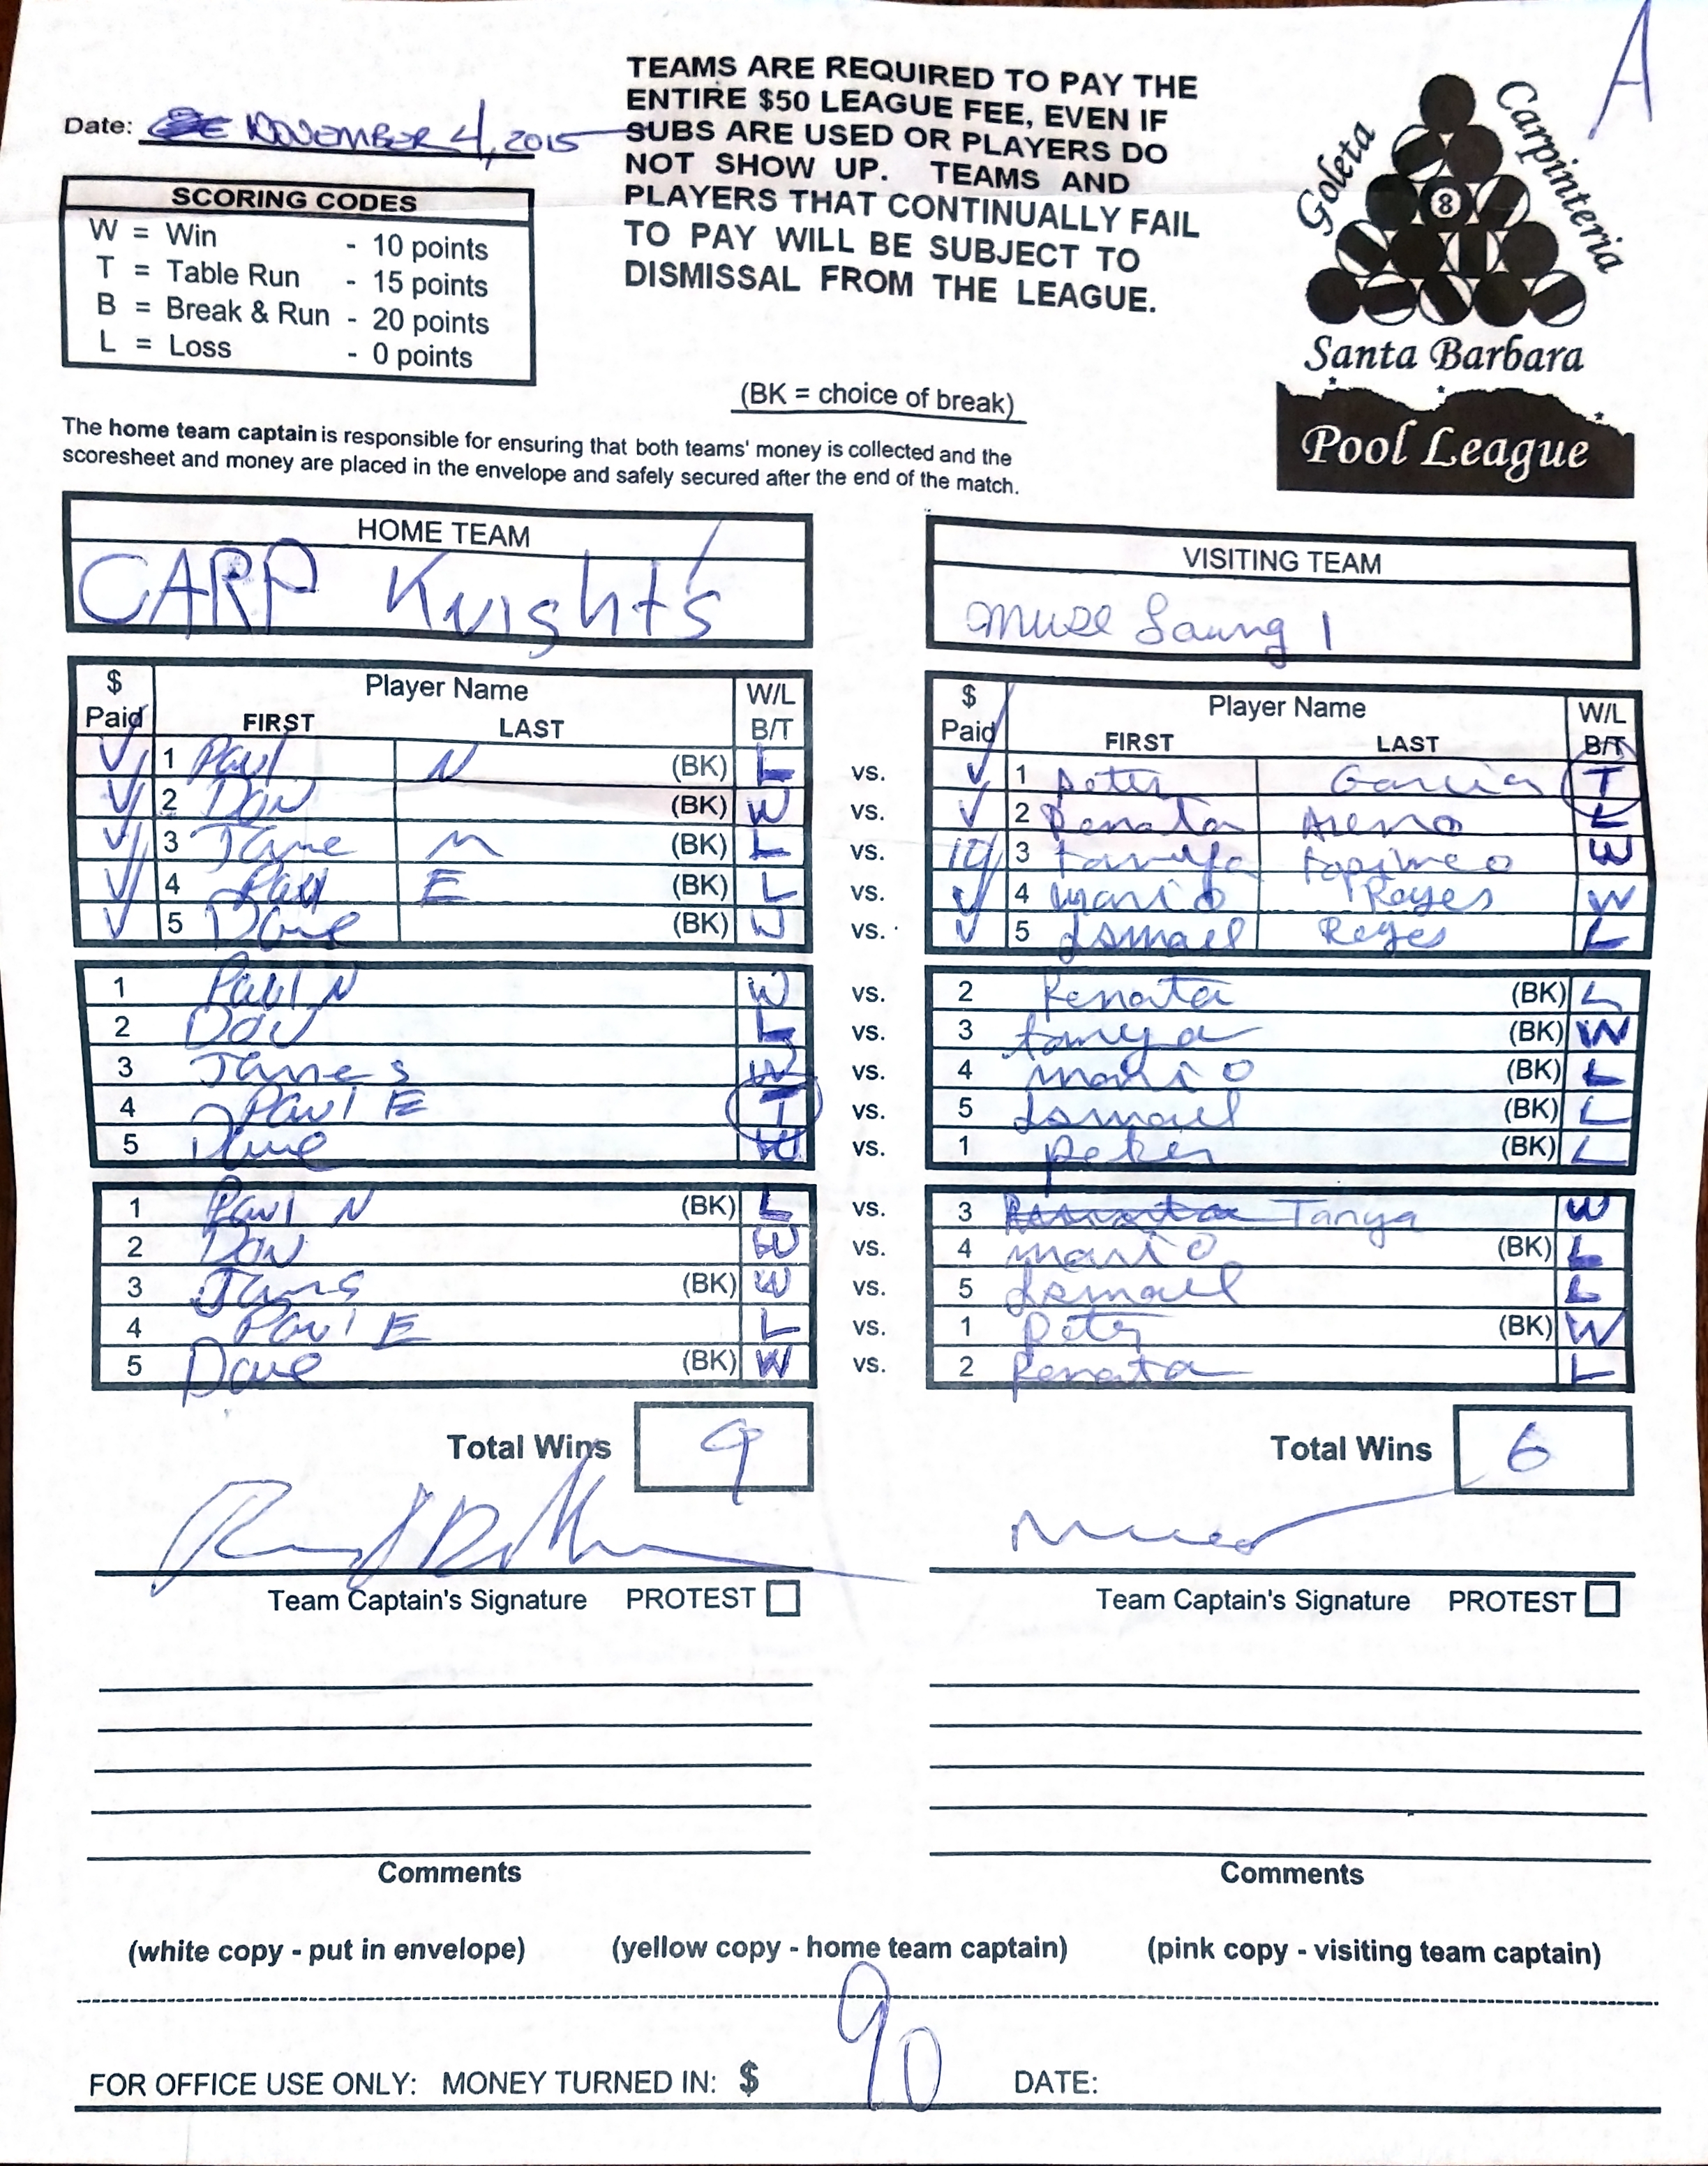 A
Date: NOVEMBER 4, 2015
TEAMS ARE REQUIRED TO PAY THE
ENTIRE $50 LEAGUE FEE, EVEN IF
SUBS ARE USED OR PLAYERS DO
NOT SHOW UP. TEAMS AND
PLAYERS THAT CONTINUALLY FAIL
TO PAY WILL BE SUBJECT TO
DISMISSAL FROM THE LEAGUE.
Goleta
Carpinteria
8
Santa Barbara
Pool League
SCORING CODES
W = Win - 10 points
T = Table Run - 15 points
B = Break & Run - 20 points
L = Loss - 0 points
(BK = choice of break)
The home team captain is responsible for ensuring that both teams' money is collected and the
scoresheet and money are placed in the envelope and safely secured after the end of the match.
HOME TEAM
CARP Knights
VISITING TEAM
Muse Loung 1
$ Paid Player Name FIRST LAST W/L B/T
$ Paid Player Name FIRST LAST W/L B/T
1 Paul N (BK) L vs. 1 Peter Garcia T
2 Don (BK) W vs. 2 Renata L
3 Jame M (BK) L vs. 10 3 Tanya W
4 Paul E (BK) L vs. 4 Mario Reyes W
5 Dave (BK) W vs. 5 Ismael Reyes L
1 Paul N W vs. 2 Renata (BK) L
2 Don L vs. 3 tanya (BK) W
3 James W vs. 4 mario (BK) L
4 Paul E T vs. 5 Ismael (BK) L
5 Dave W vs. 1 Peter (BK) L
1 Paul N (BK) L vs. 3 Tanya W
2 Don W vs. 4 mario (BK) L
3 Jams (BK) W vs. 5 Ismael L
4 Paul E L vs. 1 Peter (BK) W
5 Dave (BK) W vs. 2 Renata L
Total Wins 9
Total Wins 6
Team Captain's Signature PROTEST
Team Captain's Signature PROTEST
Comments
Comments
(white copy - put in envelope) (yellow copy - home team captain) (pink copy - visiting team captain)
FOR OFFICE USE ONLY: MONEY TURNED IN: $ 90 DATE: